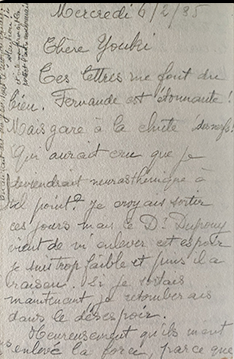 Mercredi 6/2/35
Chère Youki
Tes lettres me font du
bien. Fernande est étonnante!
Mais gare à la chute
Qui aurait cru que je
deviendrait neurasthénique à
tel point? Je croyais sortir
ces jours mais le Dr Dupouy
vient de m'enlever cet espoir
Je suis trop faible et puis il a
raison. Si je sortais
maintenant je retomberais
dans le désespoir.
Heureusement qu'ils m'ont
enlevé la force parce que